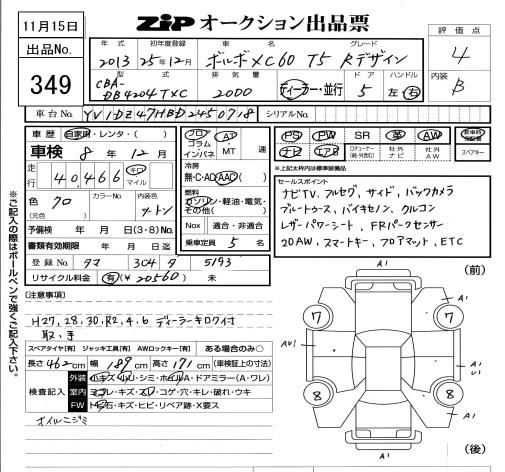 11月15日
ZIP オークション出品票
評価点
4
内装
B
出品No.
349
年式 初年度登録 車名 グレード
2013 25年12月 ボルボXC60 T5 Rデザイン
型式 排気量 ドア ハンドル
CBA-DB4204TXC 2000 ディーラー・並行 5 左・右
車台No. YV1DZ47HBD2450718 シリアルNo.
車歴 自家用・レンタ・( )
車検 8年 12月
走行 40,466 キロ マイル
色 クロ カラーNo. 内装色
(元色) 2トン
予備検 年 月 日(3・8)No.
書類有効期限 年 月 日迄
登録No. タマ 304 タ 5193
リサイクル料金 有(¥20560) 未
フロア コラム インパネ AT MT 速
冷房
無・C・AC(AAC)
燃料
ガソリン・軽油・電気・その他( )
Nox 適合・非適合
乗車定員 5 名
PS PW SR 革 AW 新車時保証書
ナビ エアB 社外ナビ 社外AW スペアキー
※上記太枠内は標準装備品
セールスポイント
ナビTV、フルセグ、サイド、バックカメラ
ブルートゥース、バイキセノン、クルコン
レザーパワーシート、FRパークセンサー
20AW、スマートキー、フロアマット、ETC
※ご記入の際はボールペンで強くご記入下さい。
[注意事項]
H27,28,30,R2,4,6 ディーラーキロク付
取、手
スペアタイヤ[有] ジャッキ工具[有] AWロックキー[有] ある場合のみ○
長さ462cm 幅189cm 高さ171cm (車検証上の寸法)
検査記入
外装 小キズ・小U・シミ・ホイルA・ドアミラー(A・ワレ)
室内 ヨゴレ・キズ・スレ・コゲ・穴・キレ・破れ・ウキ
FW 飛石・キズ・ヒビ・リペア跡・X要ス
オイルニジミ
(前)
A1
A1
7
7
AU1
A1
U1
8
8
A1
A1
(後)